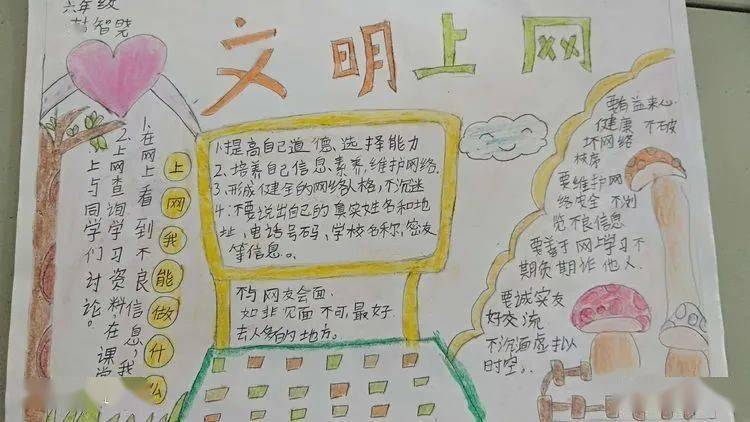 六年级
文明上网
1、在网上看到不良信息,我
2、上网查询学习资料在课堂
上与同学们讨论。
上网我能做什么
1、提高自己道德、选择能力
2、培养自己信息、素养,维护网络.
3、形成健全的网络人格,不沉迷
4:不要说出自己的真实姓名和地
址、电话号码、学校名称、密友
等信息。
不与网友会面
如非见面不可,最好
去人多的地方。
要有益来心
健康 不破
坏网络
秩序
要维护网
络安全 不浏
览不良信息
要善于网上学习不
期负期诈他人.
要诚实友
好交流
不沉湎虚拟
时空。